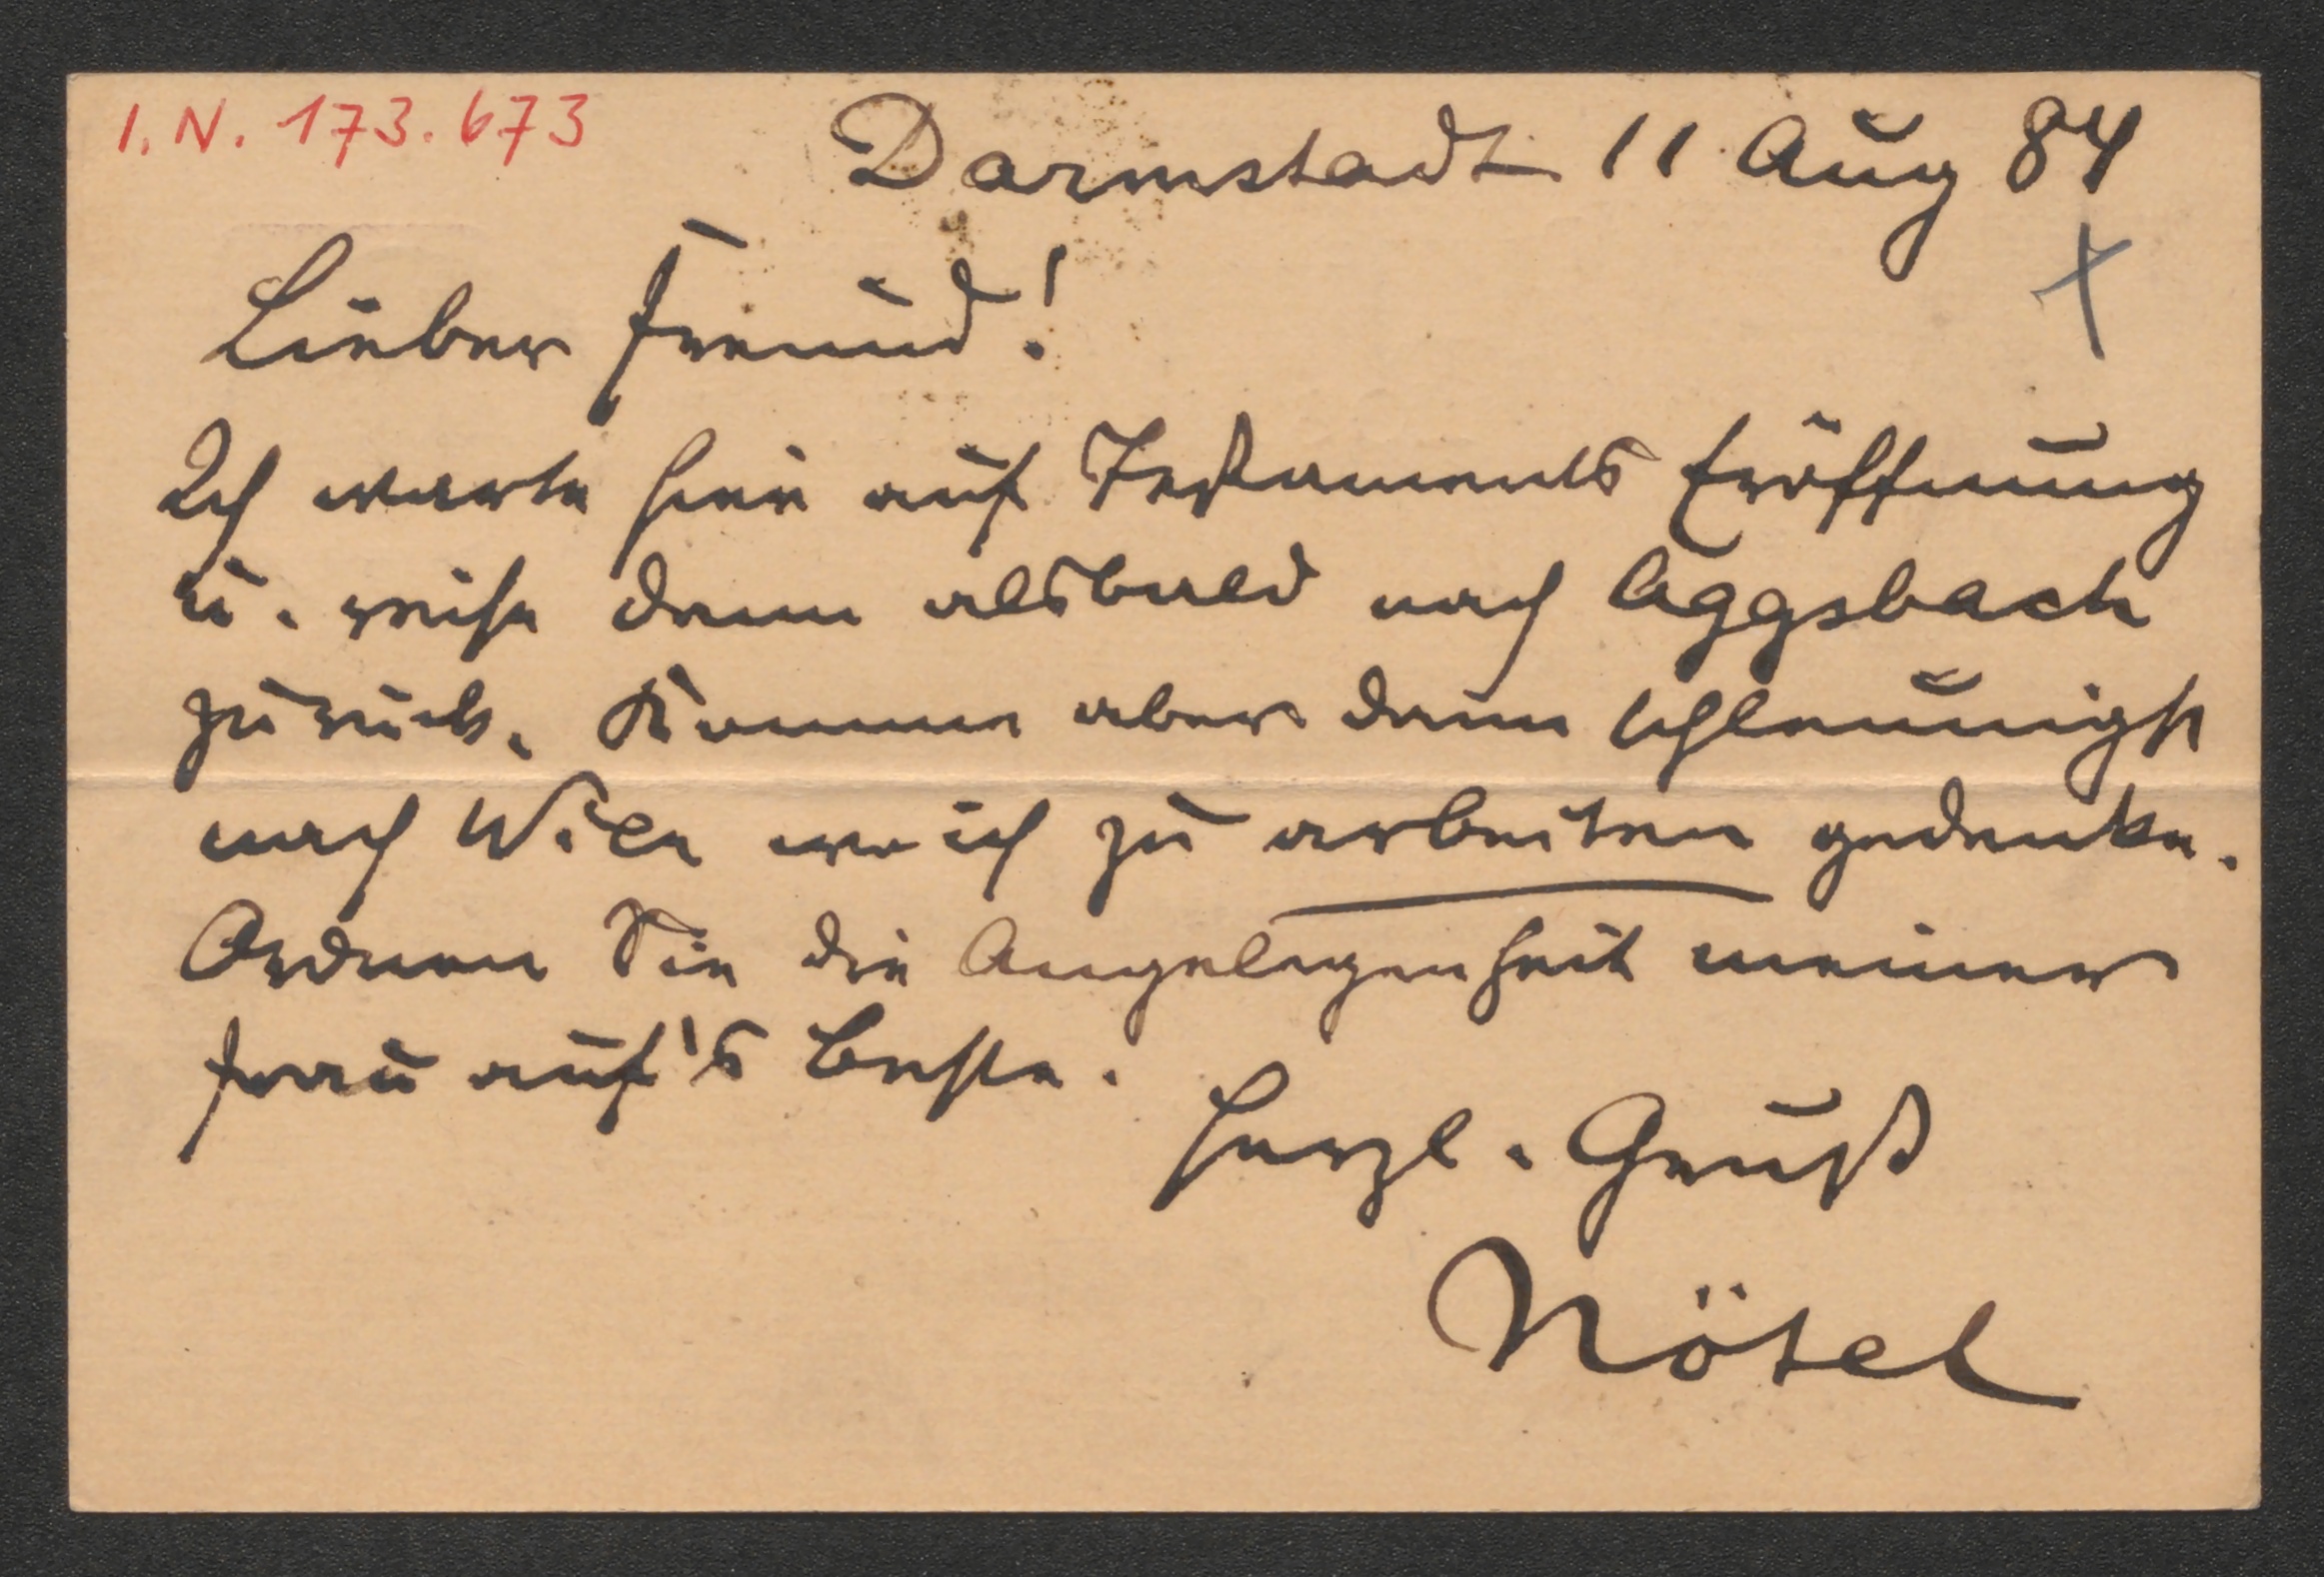 I.N. 173.673
Darmstadt 11 Aug 84
Lieber Freund!
Ich warte hier auf Testaments Eröffnung
u. reise dann alsbald nach Aggsbach
zurück. Komme aber dann schleunigst
nach Wien wo ich zu arbeiten gedenke.
Ordnen Sie die Angelegenheit meiner
Frau auf's Beste.
Herzl. Gruß
Nötel